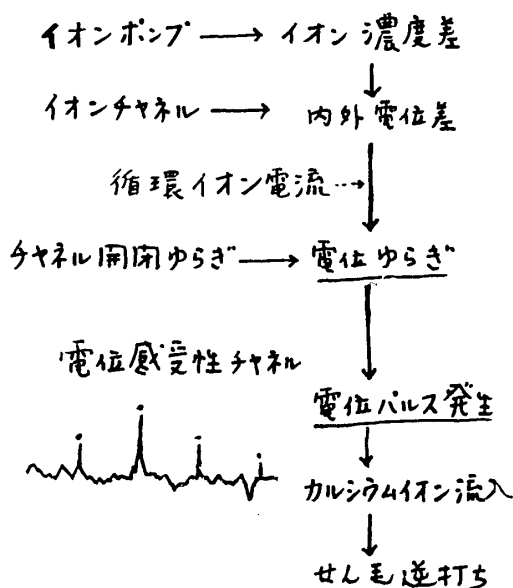 イオンポンプ → イオン濃度差
イオンチャネル → 内外電位差
循環イオン電流
チャネル開閉ゆらぎ → 電位ゆらぎ
電位感受性チャネル
電位パルス発生
カルシウムイオン流入
せん毛逆打ち